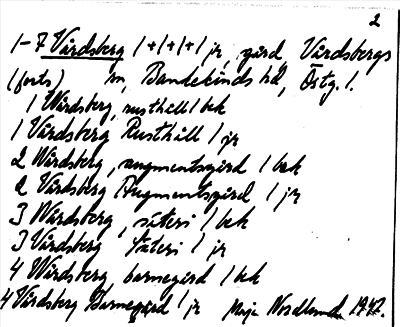 2
1-7 Vårdsberg /+/+/+/ jr, gård, Vårdsbergs
(forts) sn, Bankekinds hd, Östg. l.
1 Wårdsberg, rusthåll / bek
1 Vårdsberg Rusthåll / jr
2 Wårdsberg, augmentsgård / bek
2 Vårdsberg Augmentsgård / jr
3 Wårdsberg, säteri / bek
3 Vårdsberg Säteri / jr
4 Wårdsberg barnegård / bek
4 Vårdsberg Barnegård / jr Maja Nordlund 1947.